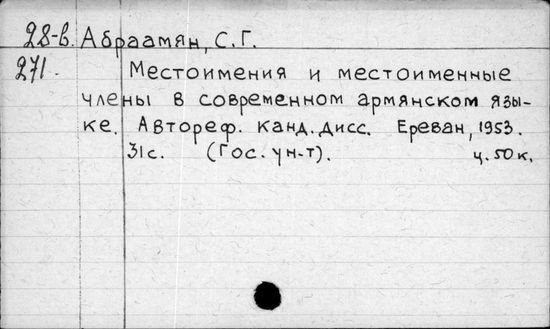 28-в. Абраамян, С.Г.
271. Местоимения и местоименные
члены в современном армянском язы-
ке. Автореф. канд. дисс. Ереван, 1953.
31с. (Гос. ун-т). ц. 50 к.